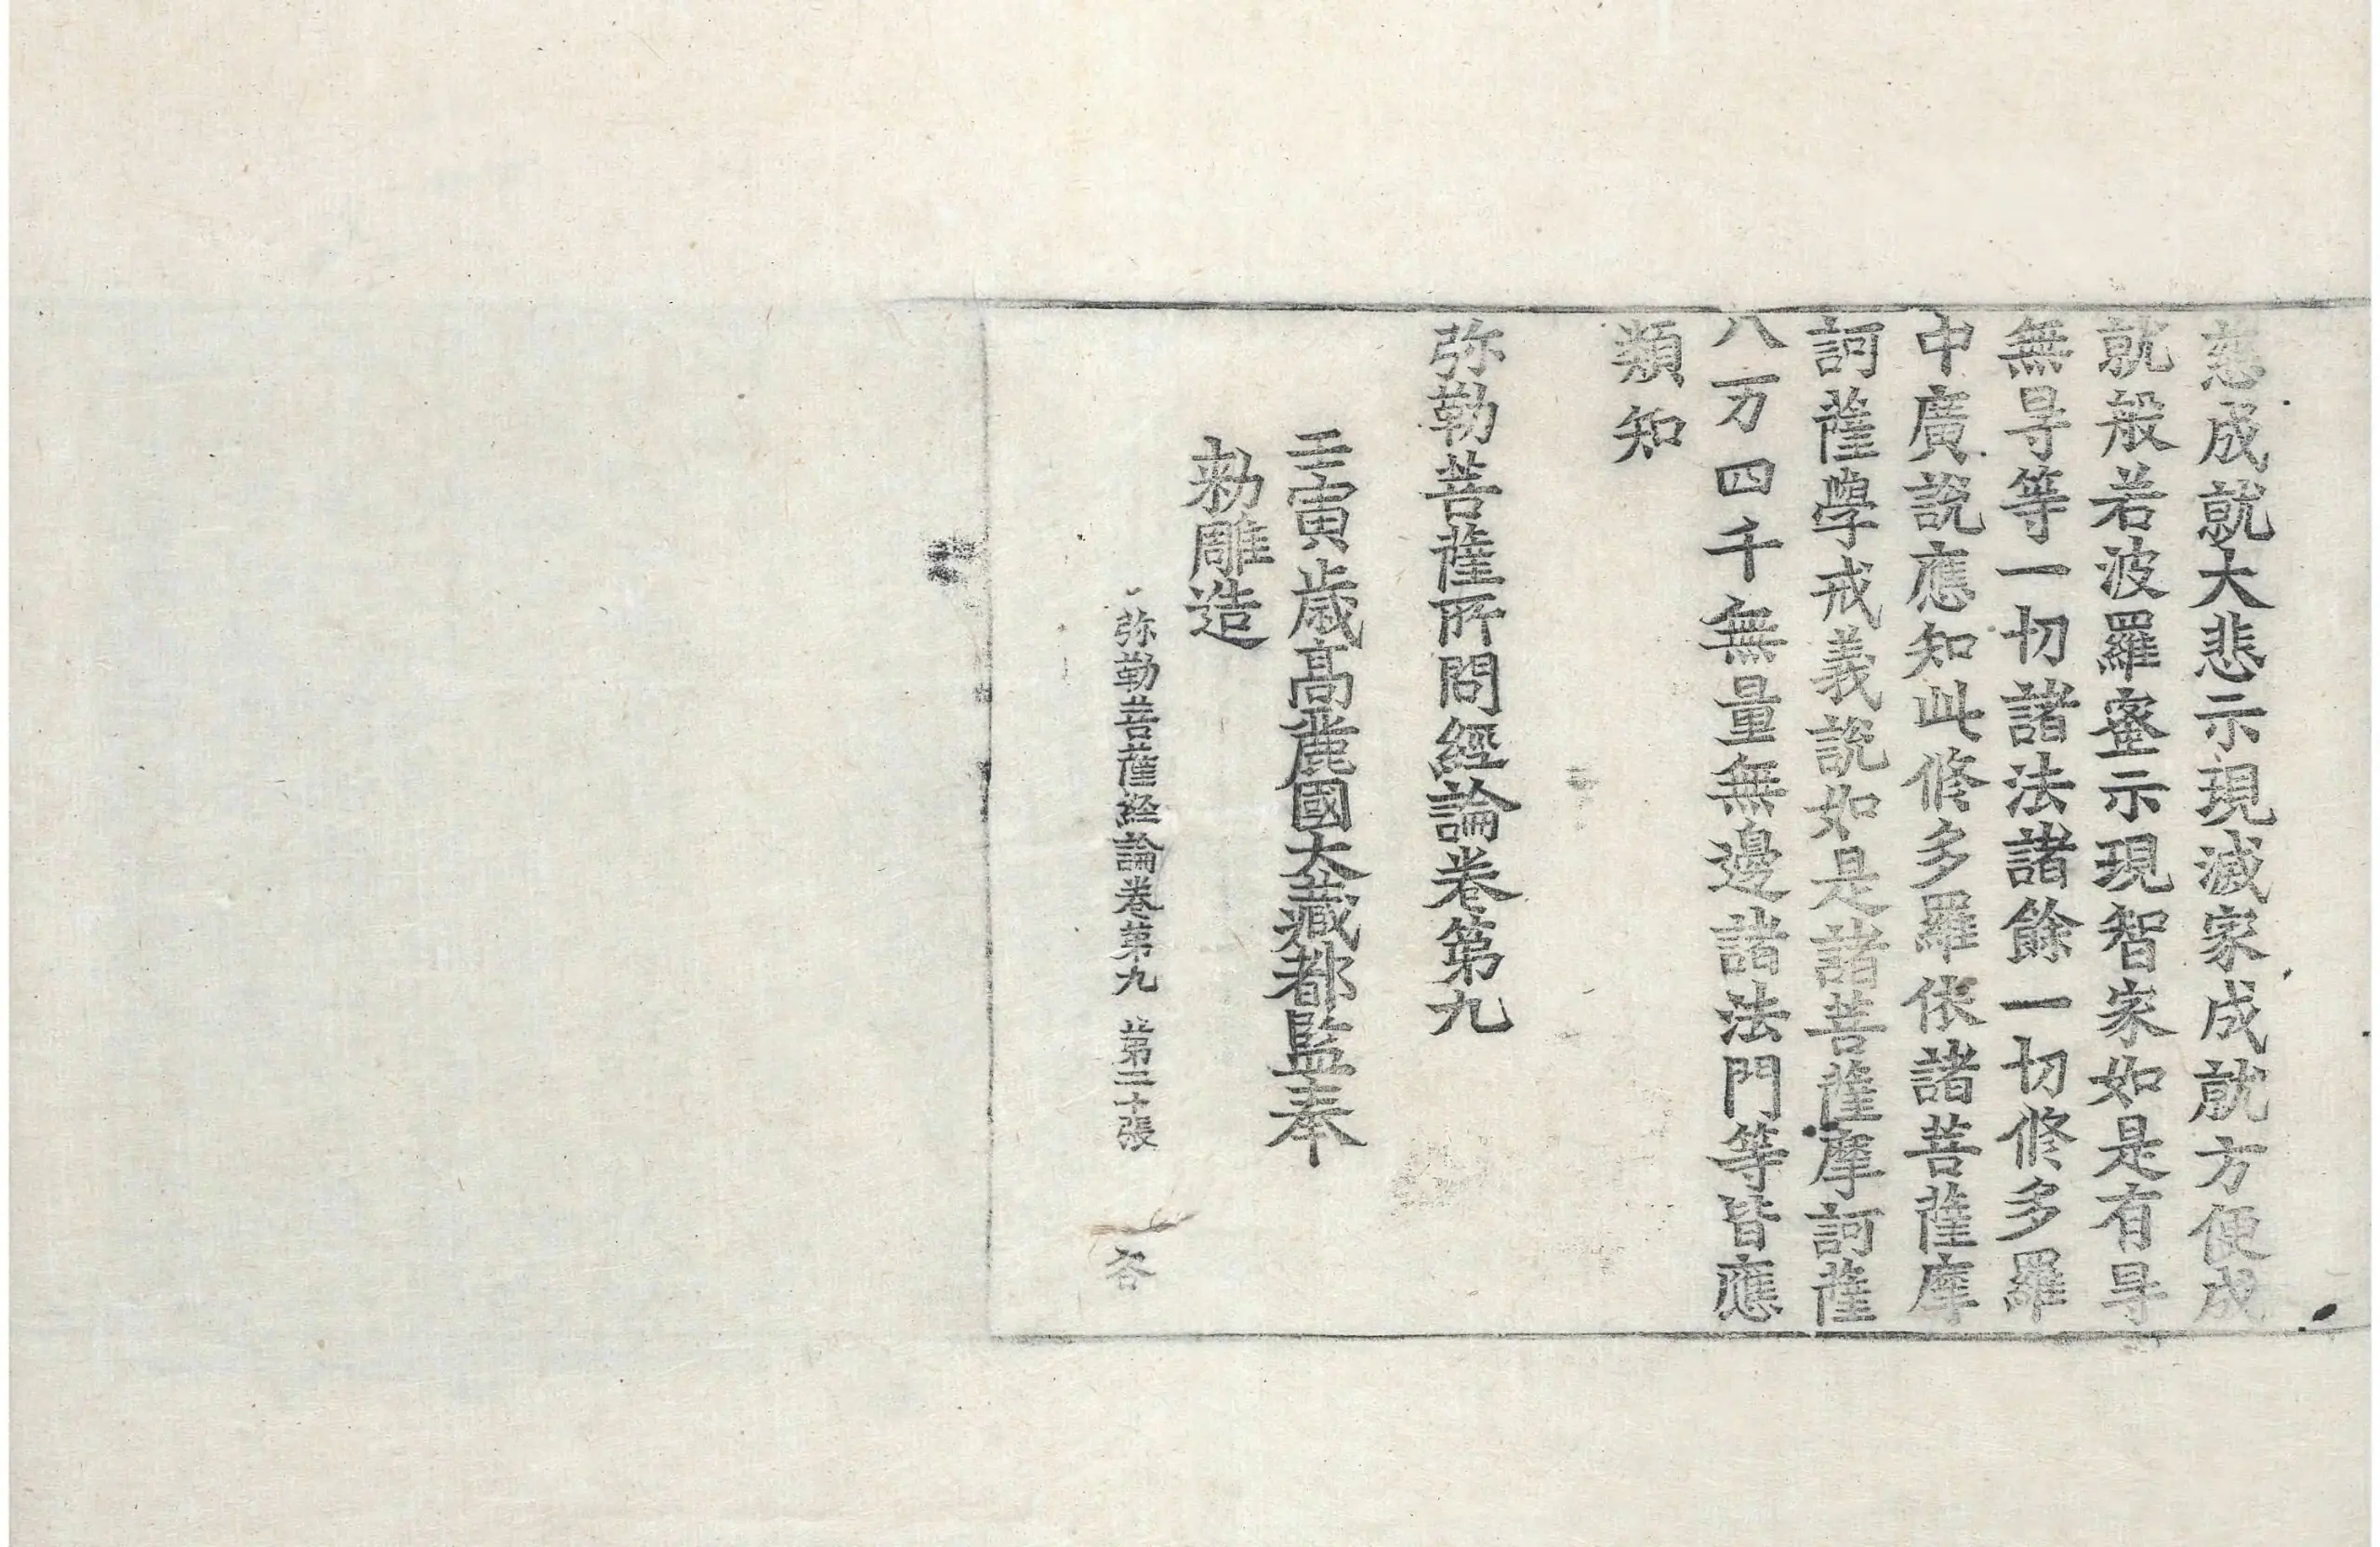 慈成就大悲示現滅家成就方便成
就般若波羅蜜示現智家如是有㝵
無㝵等一切諸法諸餘一切修多羅
中廣說應知此修多羅依諸菩薩摩
訶薩學戒義說如是諸菩薩摩訶薩
八万四千無量無邊諸法門等皆應
類知
弥勒菩薩所問經論卷第九
壬寅歲高麗國大藏都監奉
勑雕造
弥勒菩薩經論卷第九 第二十張